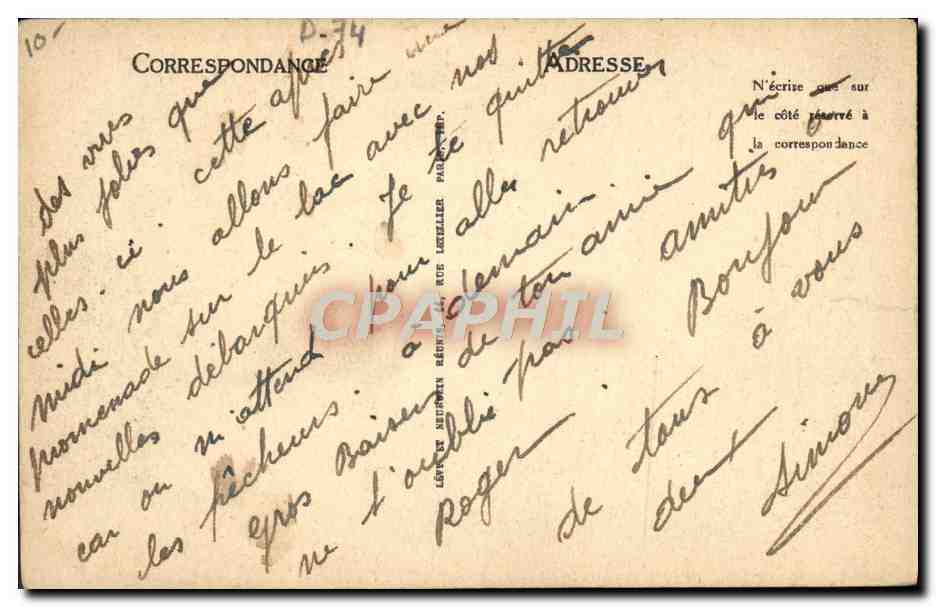 10-
D-74
CORRESPONDANCE
ADRESSE
N'écrire que sur
le côté réservé à
la correspondance
des vues
plus jolies que
celles-ci. cette après
midi nous allons faire une
promenade sur le lac avec nos
nouvelles débarquées. Je te quitte
car on m'attend pour aller retrouver
les pêcheurs. à demain
gros Baisers de ton amie qui
ne t'oublie pas. amitiés à
Roger Bonjour
de tous à vous
deux
Simone
LÉVY ET NEURDEIN RÉUNIS, 44, RUE LETELLIER PARIS, IMP.
CPAPHIL